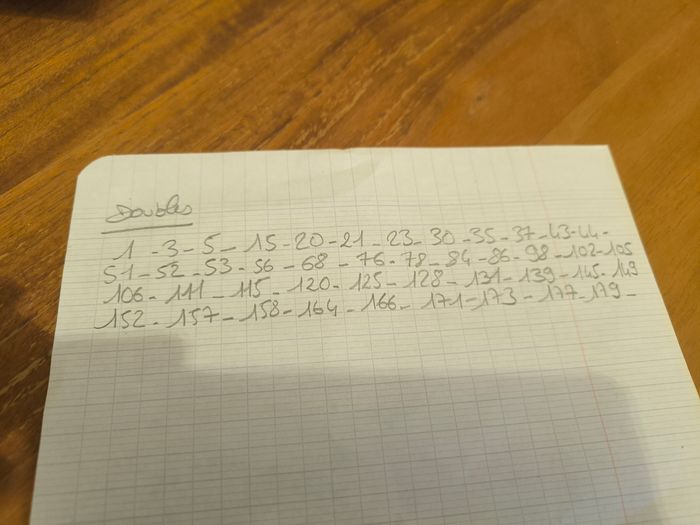 Doubles
1 - 3 - 5 - 15 - 20 - 21 - 23 - 30 - 35 - 37 - 43 - 44 -
51 - 52 - 53 - 56 - 68 - 76 - 78 - 84 - 86 - 98 - 102 - 105
106 - 111 - 115 - 120 - 125 - 128 - 131 - 139 - 145 - 149
152 - 157 - 158 - 164 - 166 - 171 - 173 - 177 - 179 -